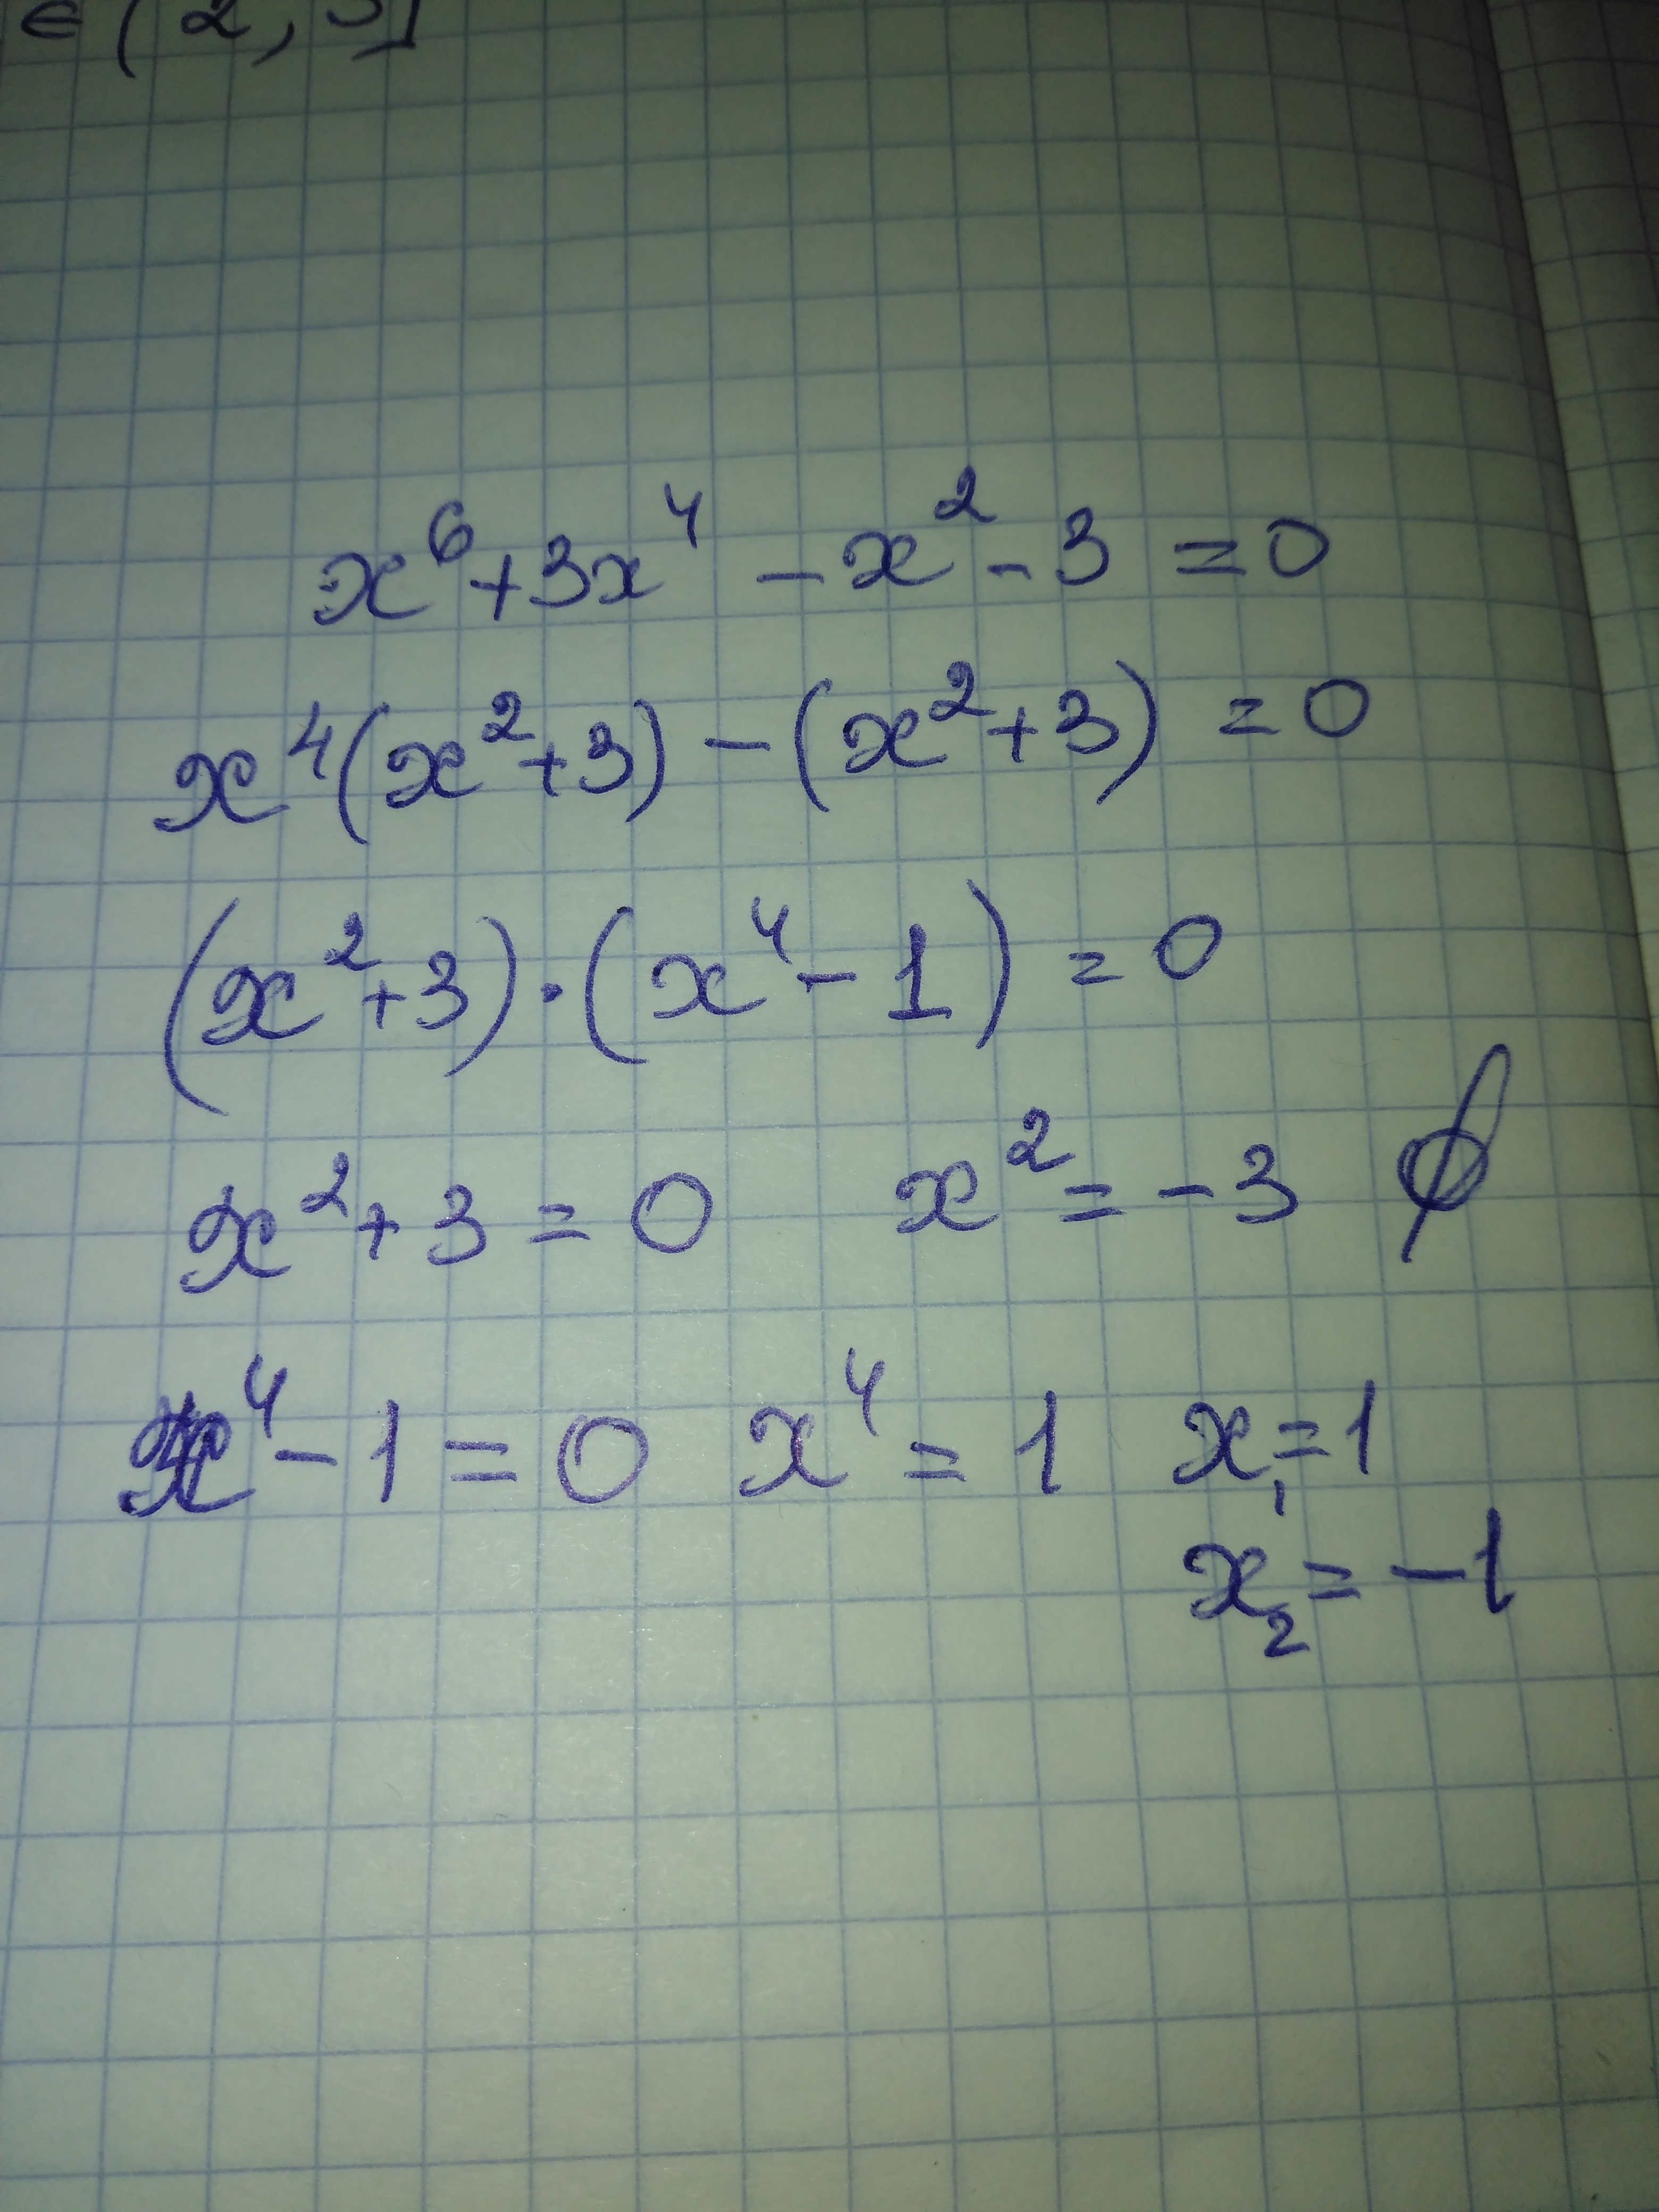 ∈(2,
x⁶+3x⁴ - x² - 3 = 0
x⁴(x²+3) - (x²+3) = 0
(x²+3)·(x⁴-1) = 0
x²+3=0 x²=-3 ∅
x⁴-1=0 x⁴=1 x₁=1
x₂=-1